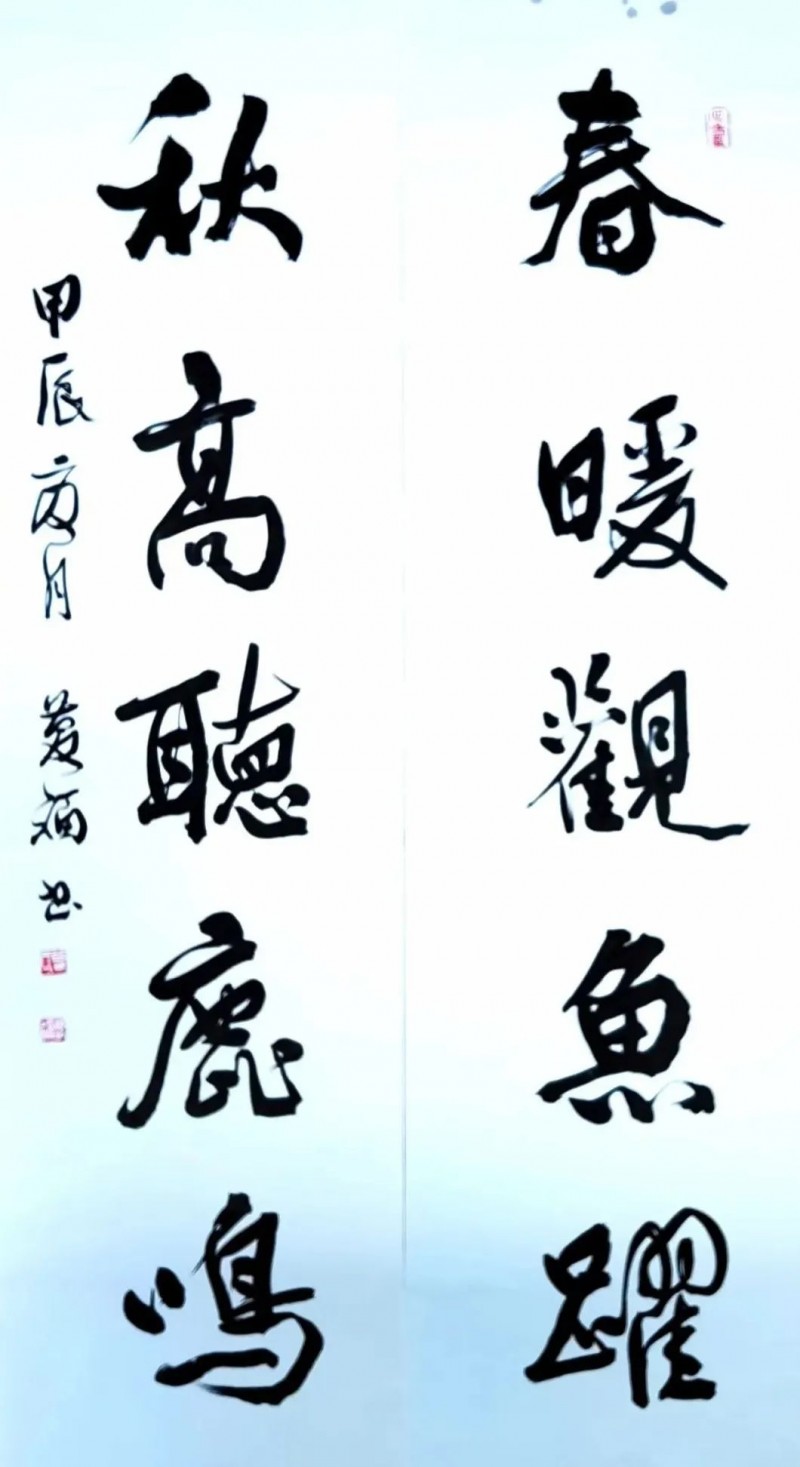 春暖觀魚躍
秋高聽鹿鳴
甲辰 月 书